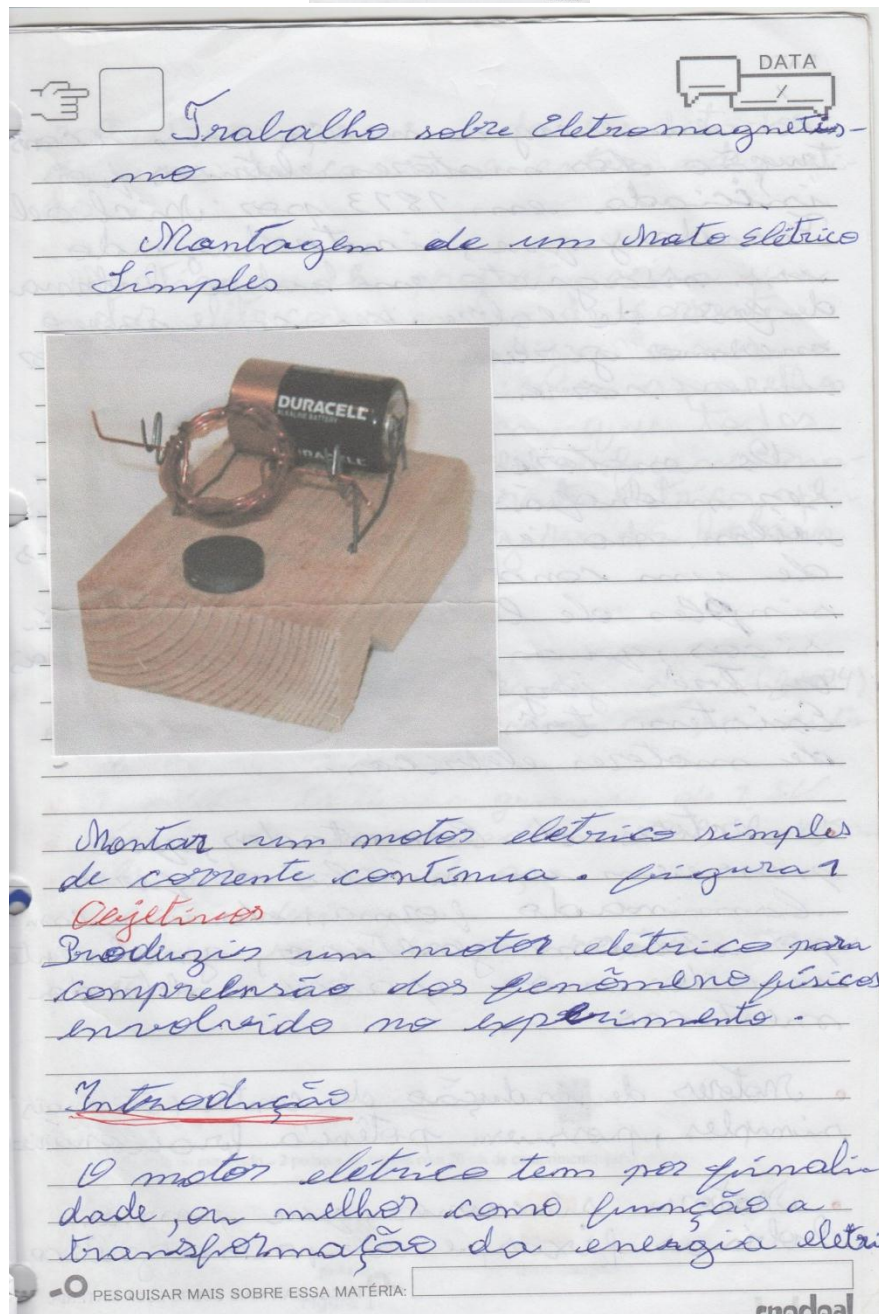 DATA
Trabalho sobre Eletromagnetis-
mo
Montagem de um Moto Elétrico
Simples
DURACELL
ALKALINE BATTERY
Montar um motor eletrico simples
de corrente contínua. figura 1
Objetivos
Produzir um motor elétrico para
compreensão dos fenômeno físicos
envolvido no experimento.
Introdução
O motor eletrico tem por finali-
dade, ou melhor como função a
transformação da energia eletri
PESQUISAR MAIS SOBRE ESSA MATÉRIA: